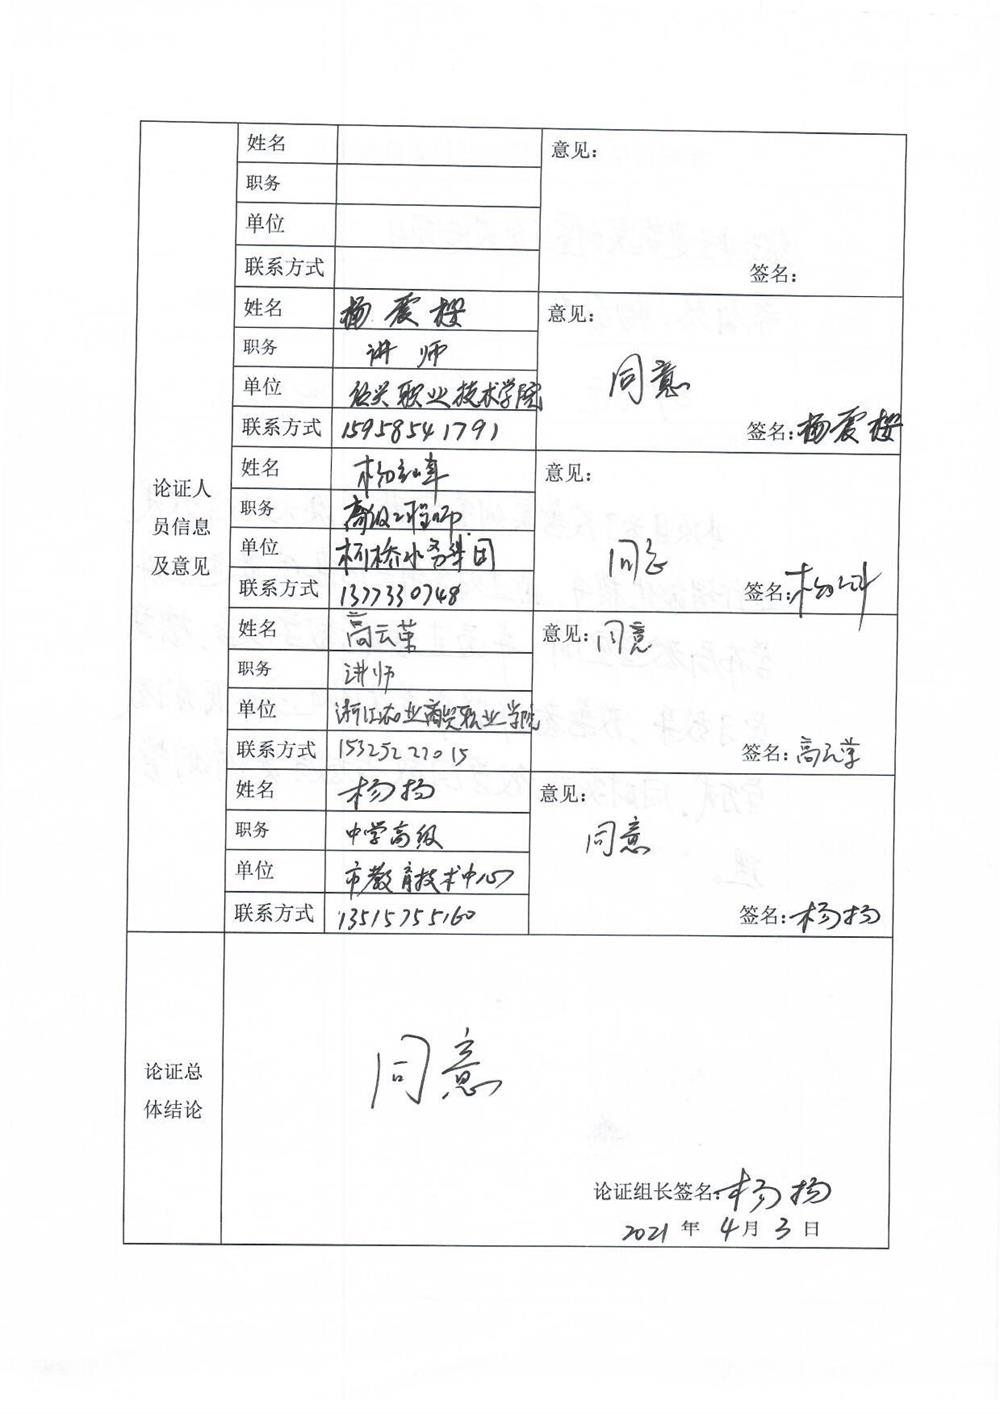 论证人
员信息
及意见
姓名
职务
单位
联系方式
意见：
签名：
姓名 杨震樱
职务 讲师
单位 绍兴职业技术学院
联系方式 15958541791
意见：
同意
签名：杨震樱
姓名 杨
职务 高级工程师
单位 柯桥水务集团
联系方式 13773330748
意见：
同意
签名：杨
姓名 高云荣
职务 讲师
单位 浙江农业商贸职业学院
联系方式 15325227015
意见：同意
签名：高云荣
姓名 杨扬
职务 中学高级
单位 市教育技术中心
联系方式 13515755160
意见：
同意
签名：杨扬
论证总
体结论
同意
论证组长签名：杨扬
2021 年 4 月 3 日